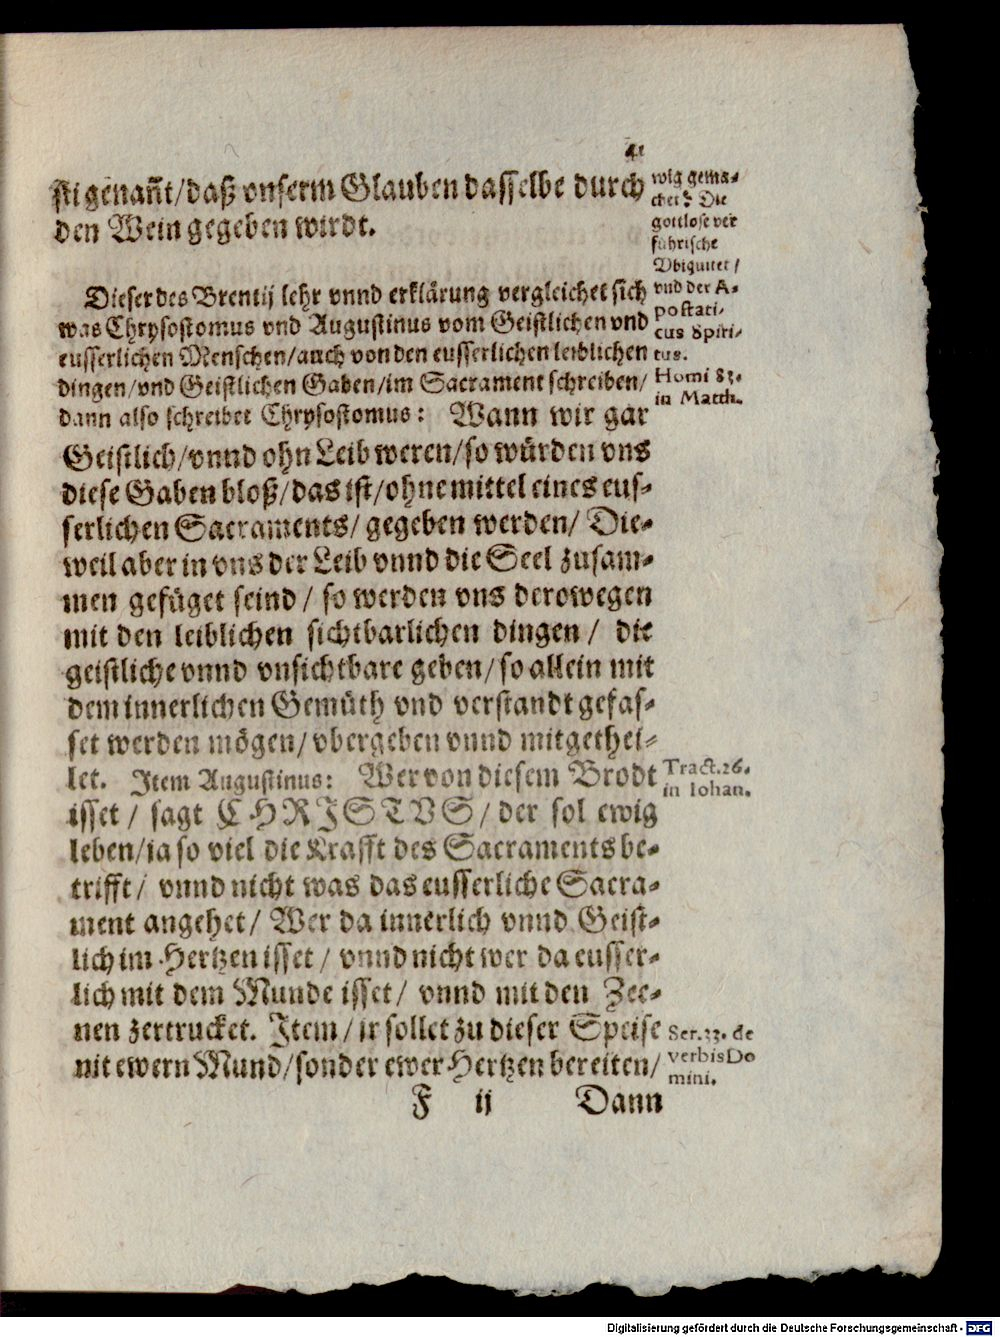 41
sti genañt/daß vnserm Glauben dasselbe durch
den Wein gegeben wirdt.
wig gema-
chet? Die
gottlose ver
führische
Vbiquitet/
vnd der A-
postati-
cus Spiri-
tus.
Dieser des Brentij lehr vnnd erklärung vergleichet sich
was Chrysostomus vnd Augustinus vom Geistlichen vnd
eusserlichen Menschen/auch von den eusserlichen leiblichen
dingen/vnd Geistlichen Gaben/im Sacrament schreiben/
dann also schreibet Chrysostomus: Wann wir gar
Homi 83.
in Matth.
Geistlich/vnnd ohn Leib weren/so würden vns
diese Gaben bloß/das ist/ohne mittel eines eus-
serlichen Sacraments/ gegeben werden/ Die-
weil aber in vns der Leib vnnd die Seel zusam-
men gefüget seind/ so werden vns derowegen
mit den leiblichen sichtbarlichen dingen/ die
geistliche vnnd vnsichtbare geben/so allein mit
dem innerlichen Gemüth vnd verstandt gefas-
set werden mögen/vbergeben vnnd mitgethei-
let. Item Augustinus: Wer von diesem Brodt
Tract.26.
in Iohan.
isset/ sagt CHRISTVS/der sol ewig
leben/ia so viel die Krafft des Sacraments be-
trifft/ vnnd nicht was das eusserliche Sacra-
ment angehet/ Wer da innerlich vnnd Geist-
lich im Hertzen isset/ vnnd nicht wer da eusser-
lich mit dem Munde isset/ vnnd mit den Zee-
nen zertrucket. Item/ir sollet zu dieser Speise
nit ewern Mund/sonder ewer Hertzen bereiten/
Ser.33. de
verbis Do
mini.
F ij Dann
Digitalisierung gefördert durch die Deutsche Forschungsgemeinschaft - DFG